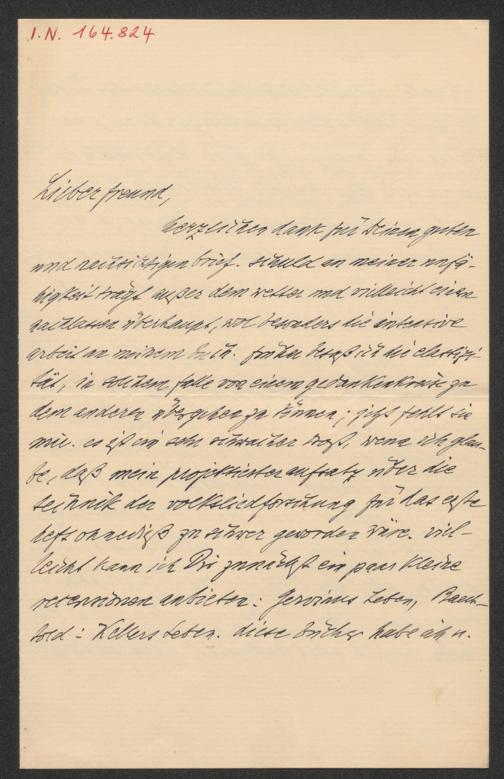 I.N. 164.824
Lieber freund,
herzlichen dank für Deinen guten
und nachsichtigen brief. schuld an meiner unfä-
higkeit trägt außer dem wetter und vielleicht einem
nachlassen überhaupt, wol besonders die intensive
arbeit an meinem buch. früher besaß ich die elastizi-
tät, in solchem falle von einem gedankenkreis zu
dem anderen übergehen zu können; jezt fehlt sie
mir. es ist ein sehr schwacher trost, wenn ich glau-
be, daß mein projektierter aufsatz über die
technik der volksliedforschung für das erste
heft ohnediß zu schwer geworden wäre. viel-
leicht kann ich Dir zunächst ein paar kleine
recensionen anbieten: Gervinus Leben, Baech-
told: Kellers Leben. diese bücher habe ich u.